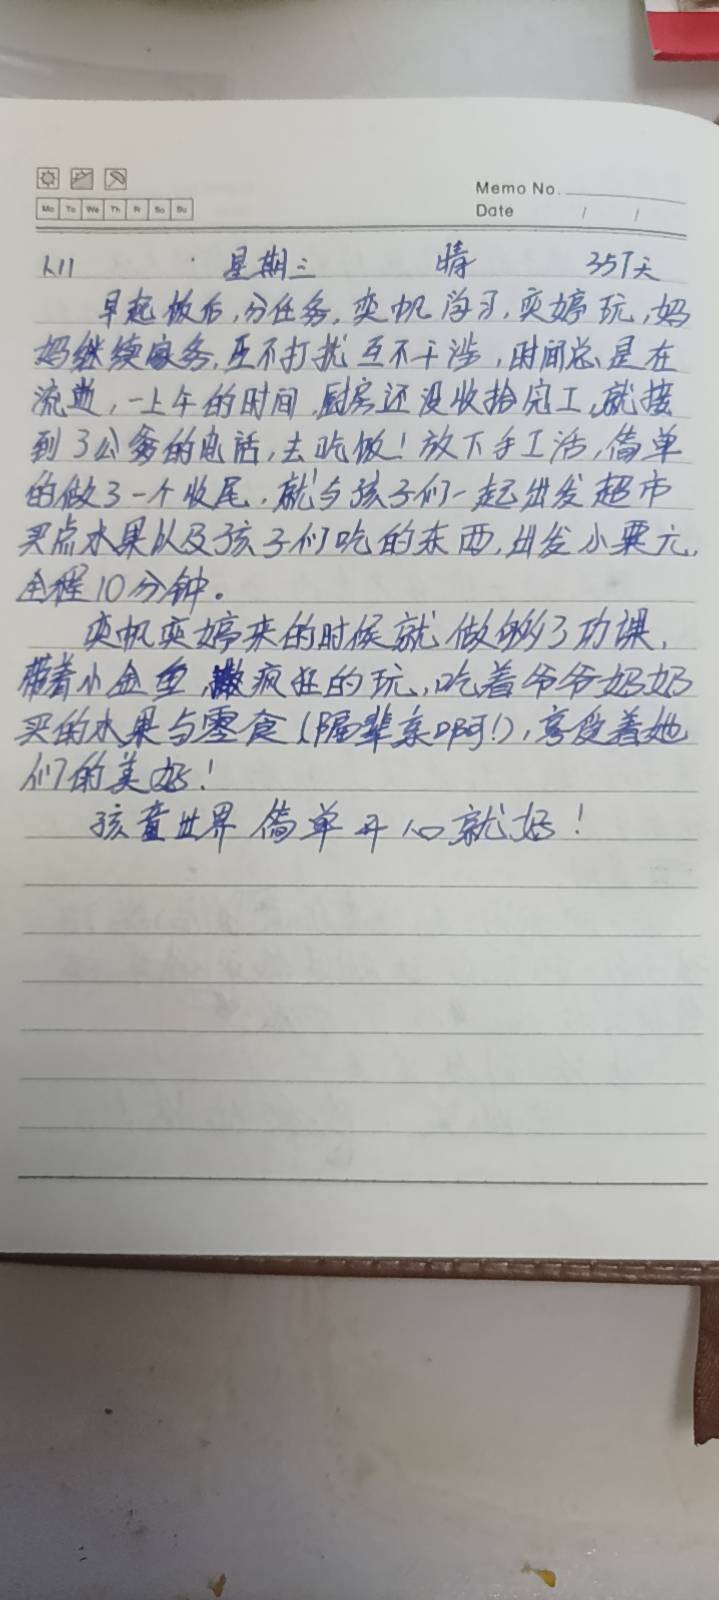 Memo No.
Mo Tu We Th Fr Sa Su
Date / /
星期三 晴 357天
早起饭后,分任务,奕帆学习,奕婷玩,妈
妈继续家务,互不打扰互不干涉,时间总是在
流逝,一上午的时间,厨房还没收拾完工,就接
到了公务的电话,去吃饭!放下手工活,简单
的做了一个收尾,就与孩子们一起出发超市
买点水果以及孩子们吃的东西,出发小栗元,
全程10分钟。
奕帆奕婷来的时候就做够了功课,
带着小金鱼,疯狂的玩,吃着爷爷奶奶
买的水果与零食(隔辈亲啊!),享受着她
们的美好!
孩童世界简单开心就好!